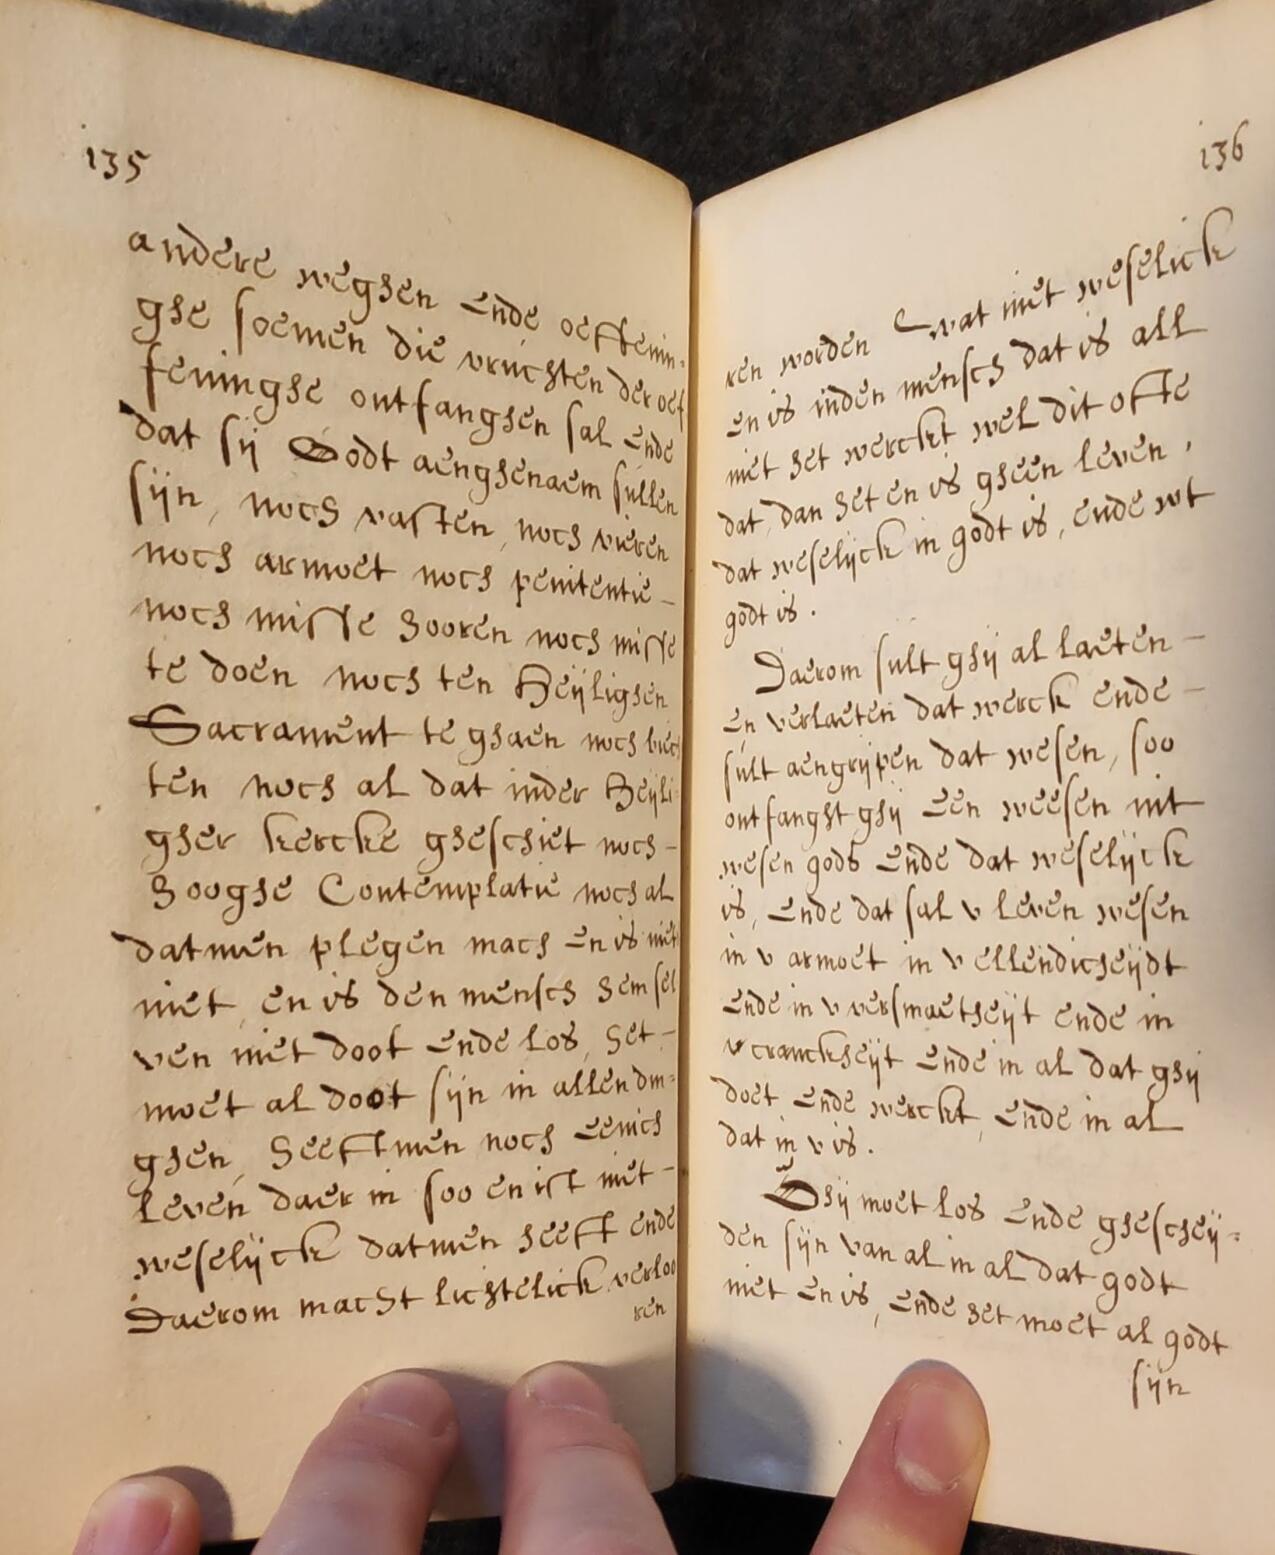 135
andere weghen ende oeffenin-
ghe soemen die vruchten der oef
feninghe ontfanghen sal ende
dat sij Godt aenghenaem sullen
sijn, noch vasten, noch vieren
noch armoet noch penitentie -
noch misse hooren noch misse
te doen noch ten Heijlighen
Sacrament te ghaen noch biech
ten noch al dat inder Heijli-
gher kercke gheschiet noch -
hooghe Contemplatie noch al
datmen plegen mach en is niet
niet, en is den mensch hem sel
ven niet doot ende los, het -
moet al doot sijn in allen din-
ghen, heeftmen noch eenich
leven daer in soo en ist niet -
weselijck datmen heeft ende
Daerom macht lichtelick verloo
ren
136
ren worden Wat niet weselick
en is inden mensch dat is all
niet het werckt wel dit ofte
dat, dan het en is gheen leven,
dat weselijck in godt is, ende wt
godt is.
Daerom sult ghij al laeten -
en verlaeten dat werck ende -
sult aengrijpen dat wesen, soo
ontfanght ghij een weesen uit
wesen gods ende dat weselijck
is, ende dat sal v leven wesen
in v armoet in v ellendicheijdt
ende in v versmaetheijt ende in
v cranckheijt ende in al dat ghij
doet ende werckt, ende in al
dat in v is.
Ghij moet los ende ghescheij-
den sijn van al in al dat godt
niet en is, ende het moet al godt
sijn